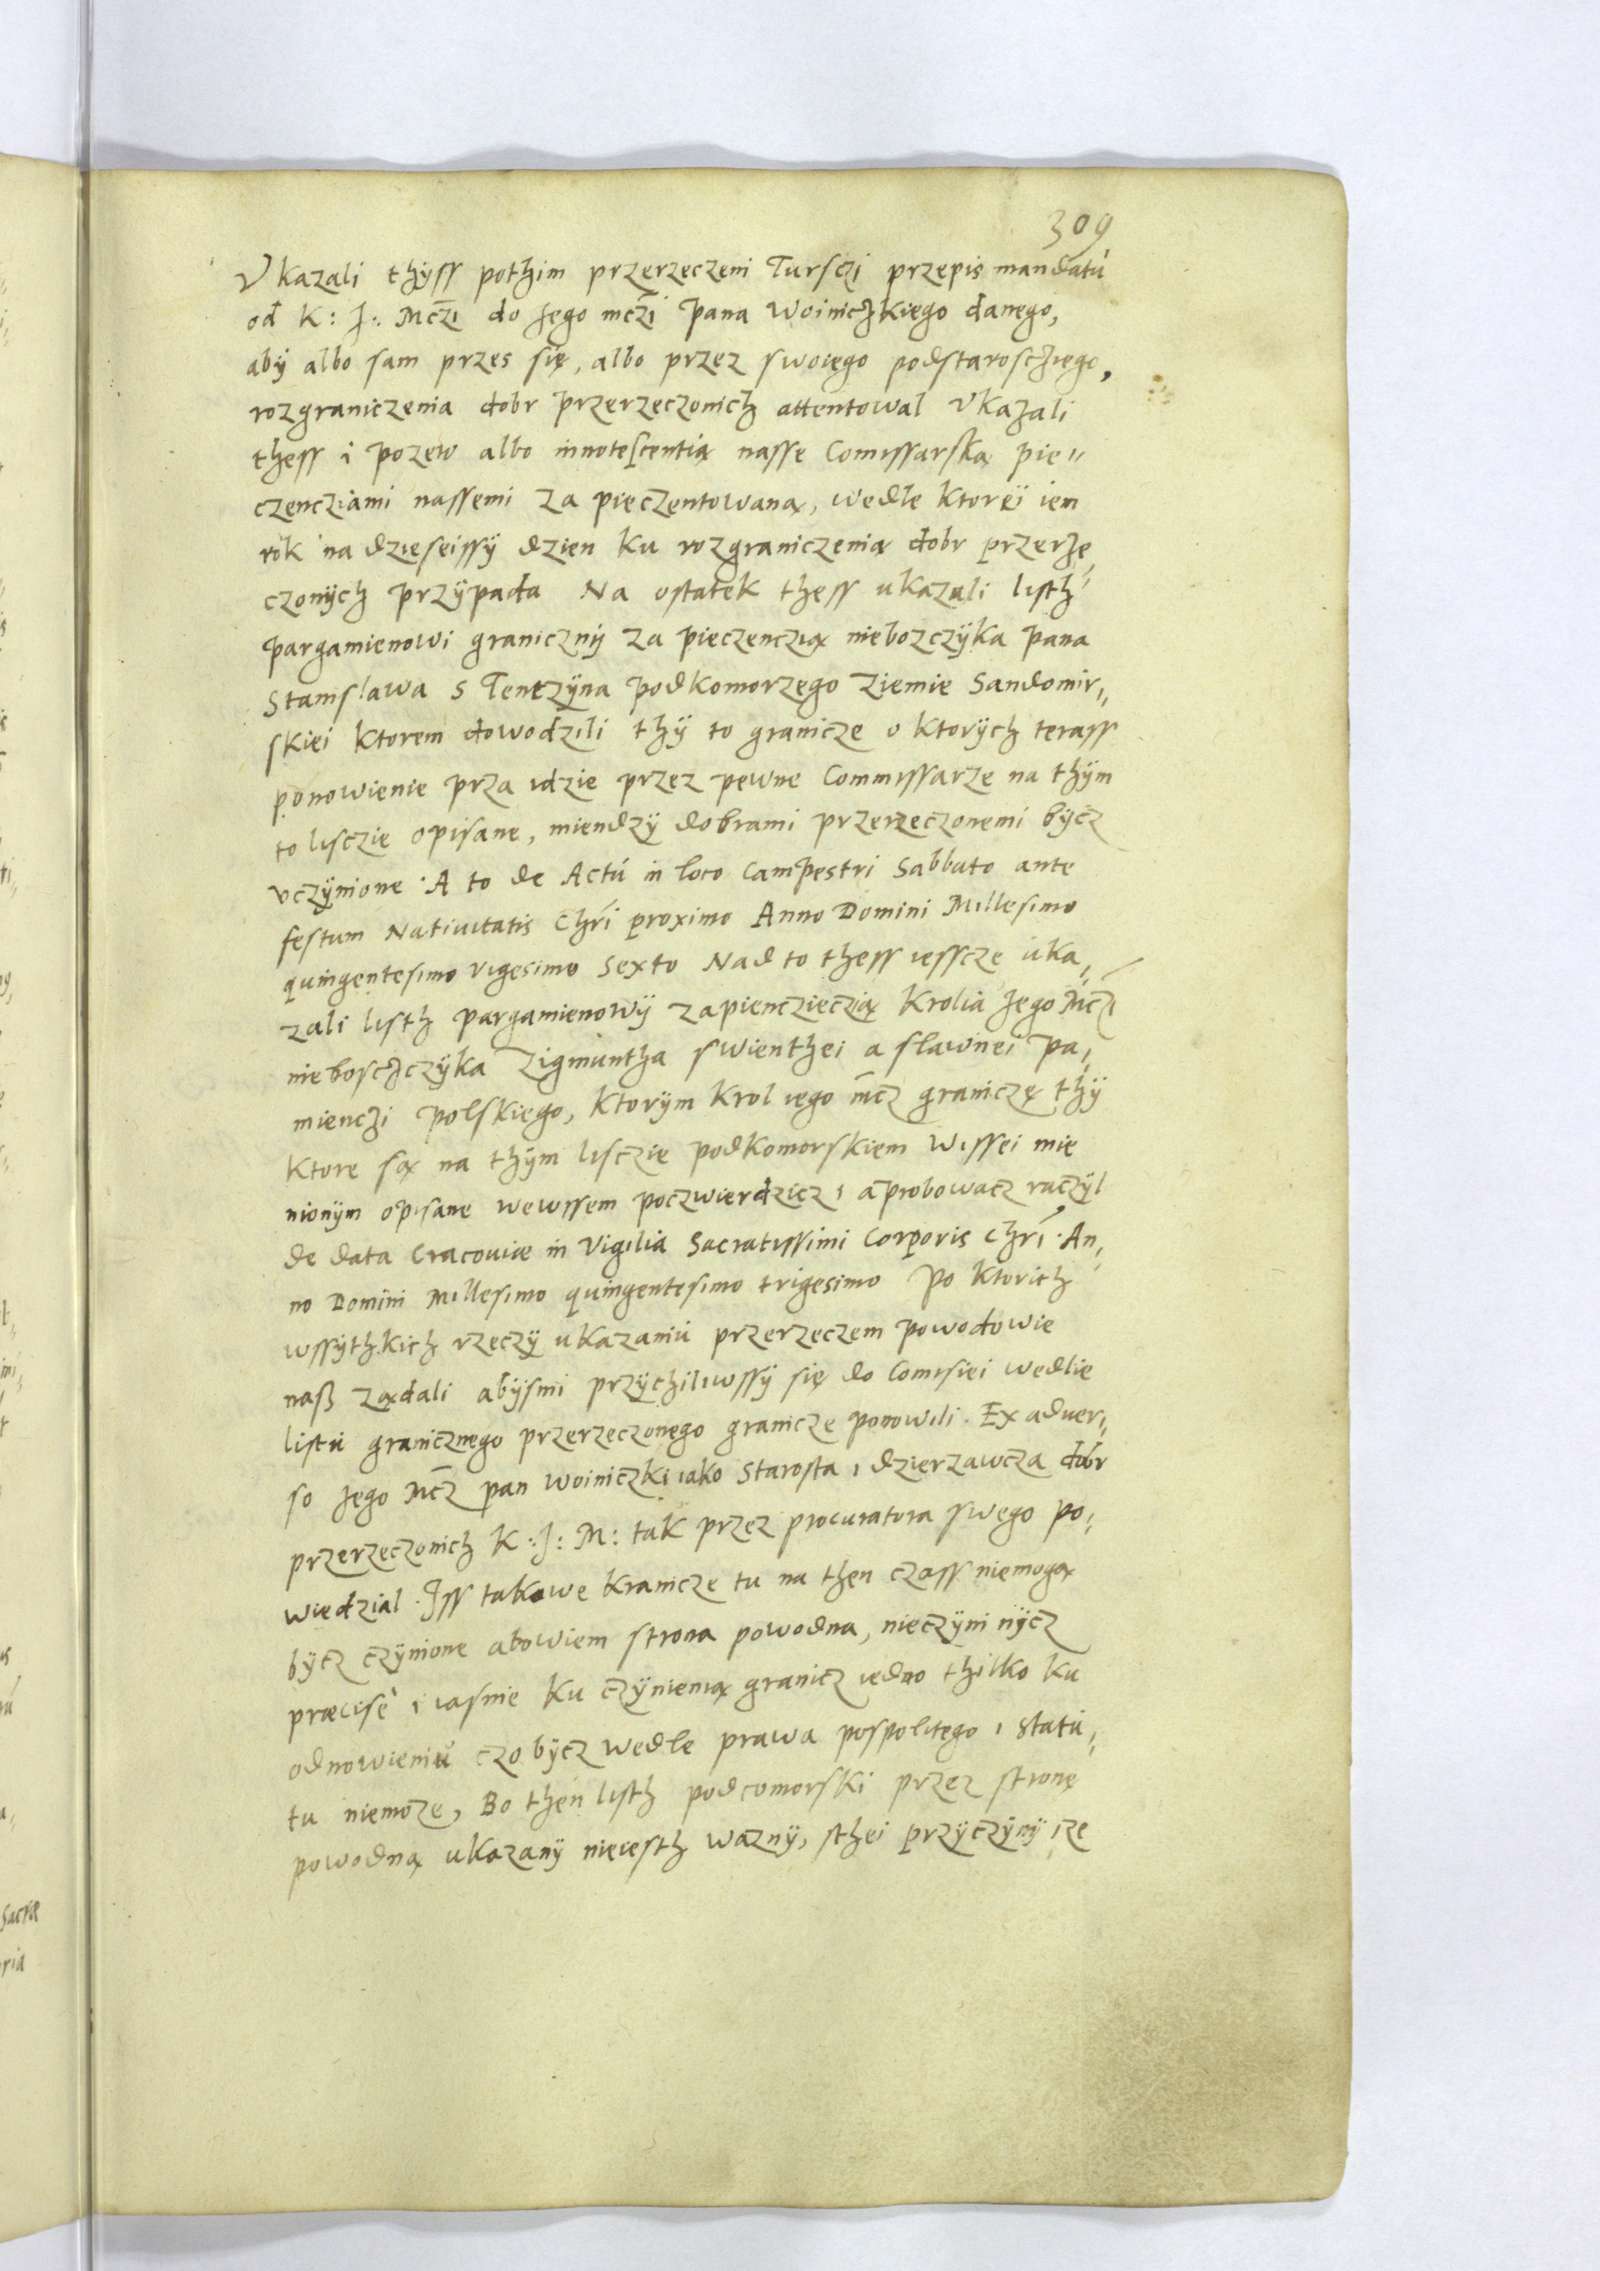 309
Vkazali thyss pothim przerzeczeni Tursczi przepis mandatu
od K: J: Mczi do Jego mczi pana Woiniczkiego danego,
aby albo sam przes się, albo przez swoiego podstarosczięgo,
rozgraniczenia dobr przerzeczonich attentowal Vkazali
thess i pozew albo innotescentią nasse Comissarską pie„
czencziami nassemi za pieczentowaną, wedle ktoréi iem
rok na dzieseissÿ dzien ku rozgraniczenią dobr przerze„
czonych przÿpada Na ostatek thess ukazali listh
pargamienowi granicznÿ za pieczenczią niebozczÿka pana
Stanislawa s Tentzÿna podkomorzego ziemie Sandomir„
skiei ktorem dowodzili thÿ to granicze o ktorÿch terass
ponowienie prza idzie przez pewne Commissarze na thÿm
to lisczie opisane, miendzÿ dobrami przerzeczonemi bÿcz
vczÿnione. A to de Actu in loco Campestri Sabbato ante
festum Natiuitatis Chri proximo Anno Domini Millesimo
quingentesimo vigesimo Sexto Nad to thess iessczę uka„
zali listh pargamienowÿ zapiencziecią Krolia Jego Mczi
niebosczczÿka Zigmuntha swienthei a slawnei pa„
mienczi polskiego, ktorÿm krol iego mcz graniczę thÿ
ktore są na thÿm lisczie podkomorskiem wissei mie
nionÿm opisane wewssem poczwierdzicz i aprobowacz raczÿl
de data Cracouiæ in Vigilia Sacratissimi Corporis Chri. An„
no Domini Millesimo quingentesimo trigesimo Po ktorich
wssÿthkich rzeczÿ ukazaniu przerzeczem powodowie
naß ządali abÿsmi przÿchiliwssÿ się do Comisiei wedlie
listu granicznego przerzeczonego granicze ponowili. Ex aduer„
so Jego Mcz pan Woiniczki iako Starosta i dzierzawcza dobr
przerzeczonich K: J: M: tak przez procuratora swego po„
wiedzial. Jss takowe kranicze tu na then czass niemogą
bÿcz czÿnione abowiem strona powodna, nieczÿni nÿcz
præcisè i iasnie ku czÿnienią granicz iedno thilko ku
odnowieniu czo bÿcz wedle prawa pospolitego i statu„
tu niemoze, Bo then listh podcomorski przez stronę
powodną ukazanÿ nieiesth waznÿ, sthei przÿczÿnÿ ize